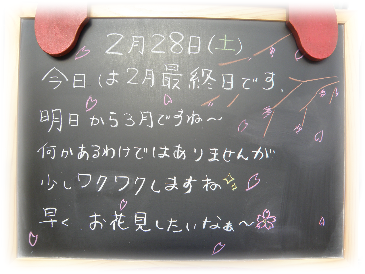 2月28日(土)
今日は2月最終日です、
明日から3月ですね〜
何かあるわけではありませんが
少しワクワクしますね
早く お花見したいなぁ〜